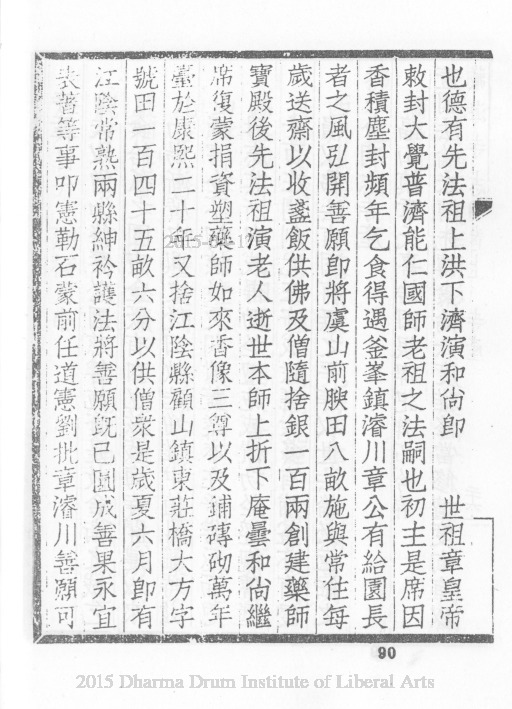 也德有先法祖上洪下濟演和尙卽 世祖章皇帝
敕封大覺普濟能仁國師老祖之法嗣也初主是席因
香積塵封頻年乞食得遇釜峯鎮濬川章公有給園長
者之風弘開善願卽將虞山前腴田八畝施與常住每
歲送齋以收盞飯供佛及僧隨捨銀一百兩創建藥師
寶殿後先法祖演老人逝世本師上折下庵曇和尙繼
席復蒙捐資塑藥師如來香像三尊以及鋪磚砌萬年
臺於康熙二十年又捨江陰縣顧山鎮東莊橋大方字
號田一百四十五畝六分以供僧衆是歲夏六月卽有
江陰常熟兩縣紳衿護法將善願旣已圓成善果永宜
表著等事叩憲勒石蒙前任道憲劉批章濬川善願可
90
2015 Dharma Drum Institute of Liberal Arts